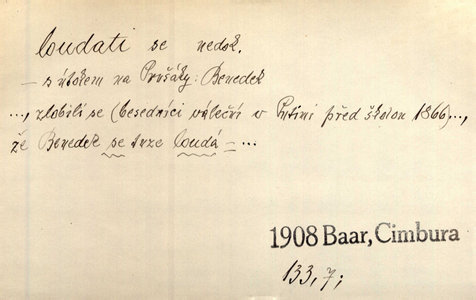 loudati se nedok.
– s útokem na Prušáky: Benedek
..., zlobili se (besedníci váleční v Putimi před školou 1866)...,
že Benedek se tuze loudá – ...
1908 Baar, Cimbura
133, 7;